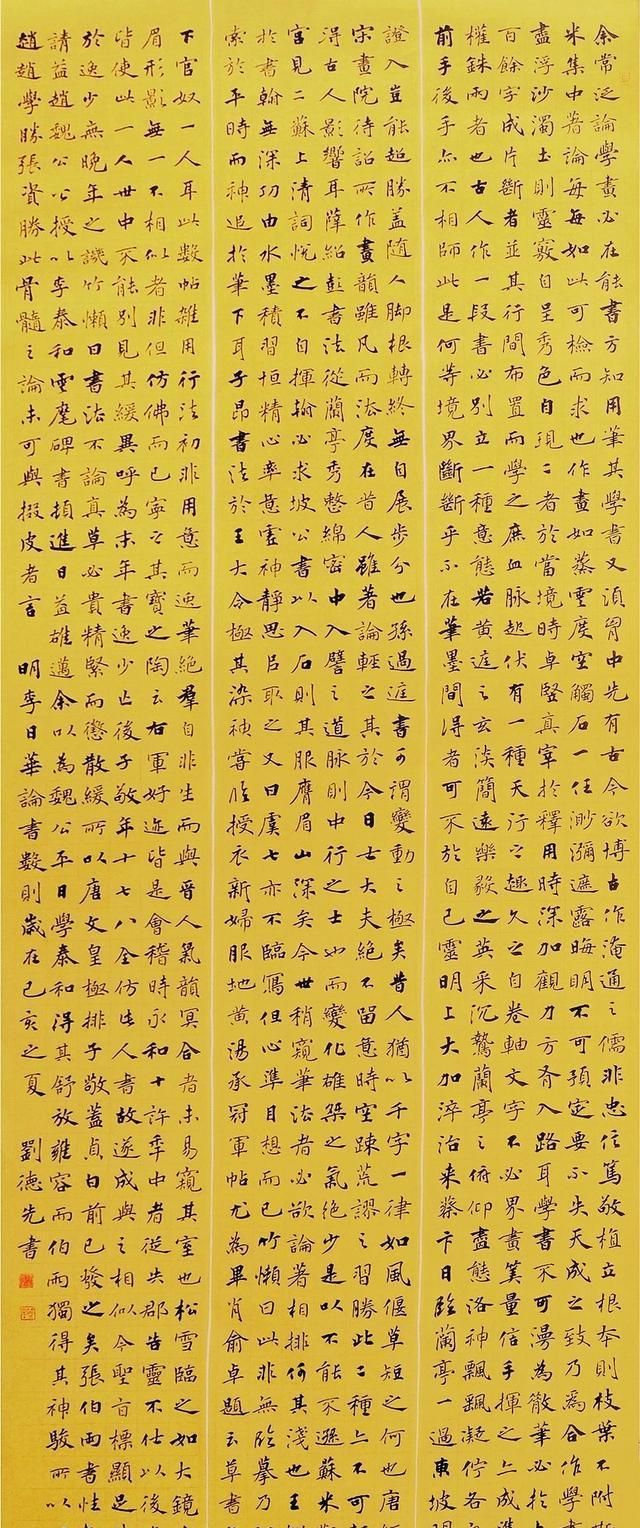 余常泛論學畫必在能書方知用筆其學書又須胷中先有古今欲博古作淹通之儒非忠信篤敬植立根本則枝葉不附
米集中著論每每如此可檢而求也作畫如蒸雲度空觸石一任渺瀰遮露晦明不可預定要不失天成之致乃為合作學書
盡浮沙濁土則靈竅自呈秀色自現二者於當境時卓豎真宰於釋用時深加觀力方有入路耳學書不可漫為散筆必於
百餘字成片斷者並其行間布置而學之庶血脉起伏有一種天行之趣久之自卷軸文字不必界畫筭量信手揮之上成準
權銖兩者也古人作一段書必別立一種意態若黃庭之玄淡簡遠樂毅之英采沉鷙蘭亭之俯仰盡態洛神飄飄凝佇各
前手後手亦不相師此是何等境界斷斷乎不在筆墨間得者可不於自己靈明上大加淬治來蔡卞日臨蘭亭一過東坡
證入豈能超勝盖隨人脚根轉終無自展步分也孫過庭書可謂變動之極矣昔人猶以千字一律如風偃草短之何也唐
宋畫院待詔所作畫韻雖凡而法度在昔人雖著論輕之其於今日士大夫絕不留意時空踈荒謬之習勝此二種上不可
淂古人影響耳薛紹彭書法從蘭亭秀整綿密中入譬之道脉則中行之士也而變化雄桀之氣絕少是以不能不遜蘇米
宮見二蘇上清詞悅之不自揮翰必求坡公書以入石則其服膺眉山深矣今世稍窺筆法者必欲論著相排何其淺也王
於書翰無深功由水墨積習恒精心率意虛神靜思以取之又曰虞七亦不臨寫但心準目想而已竹懶曰此非無臨摹乃
索於平時而神追於筆下耳子昂書法於王大令極其染神嘗臨授衣新婦服地黃湯承冠軍帖尤為畢肖俞卓題云草書
下官奴一人耳此數帖雜用行法初非用意而逸筆絕羣自非生而與晉人氣韻冥合者未易窺其室也松雪臨之如大鏡
眉形影無一不相似者非但仿佛而已寧之其寶之陶云右軍好迹皆是會稽時永和十許年中者從失郡告靈不仕以後
皆使此一人世中不能別見其緩異呼為末年書逸少亡後子敬年十七八全仿此人書故遂成與之相似今聖旨標顯足
於逸少無晚年之譏竹懶曰書法不論真草必貴精緊而懲散緩所以唐文皇極排子敬蓋貞白前已發之矣張伯雨書性
請益趙魏公公授以李泰和雲麾碑書頓進日益雄邁余以為魏公平日學泰和得其舒放雍容而伯雨獨得其神駿所以
趙趙學勝張資勝此骨髓之論未可與掇皮者言 明李日華論書數則歲在己亥之夏 劉德先書